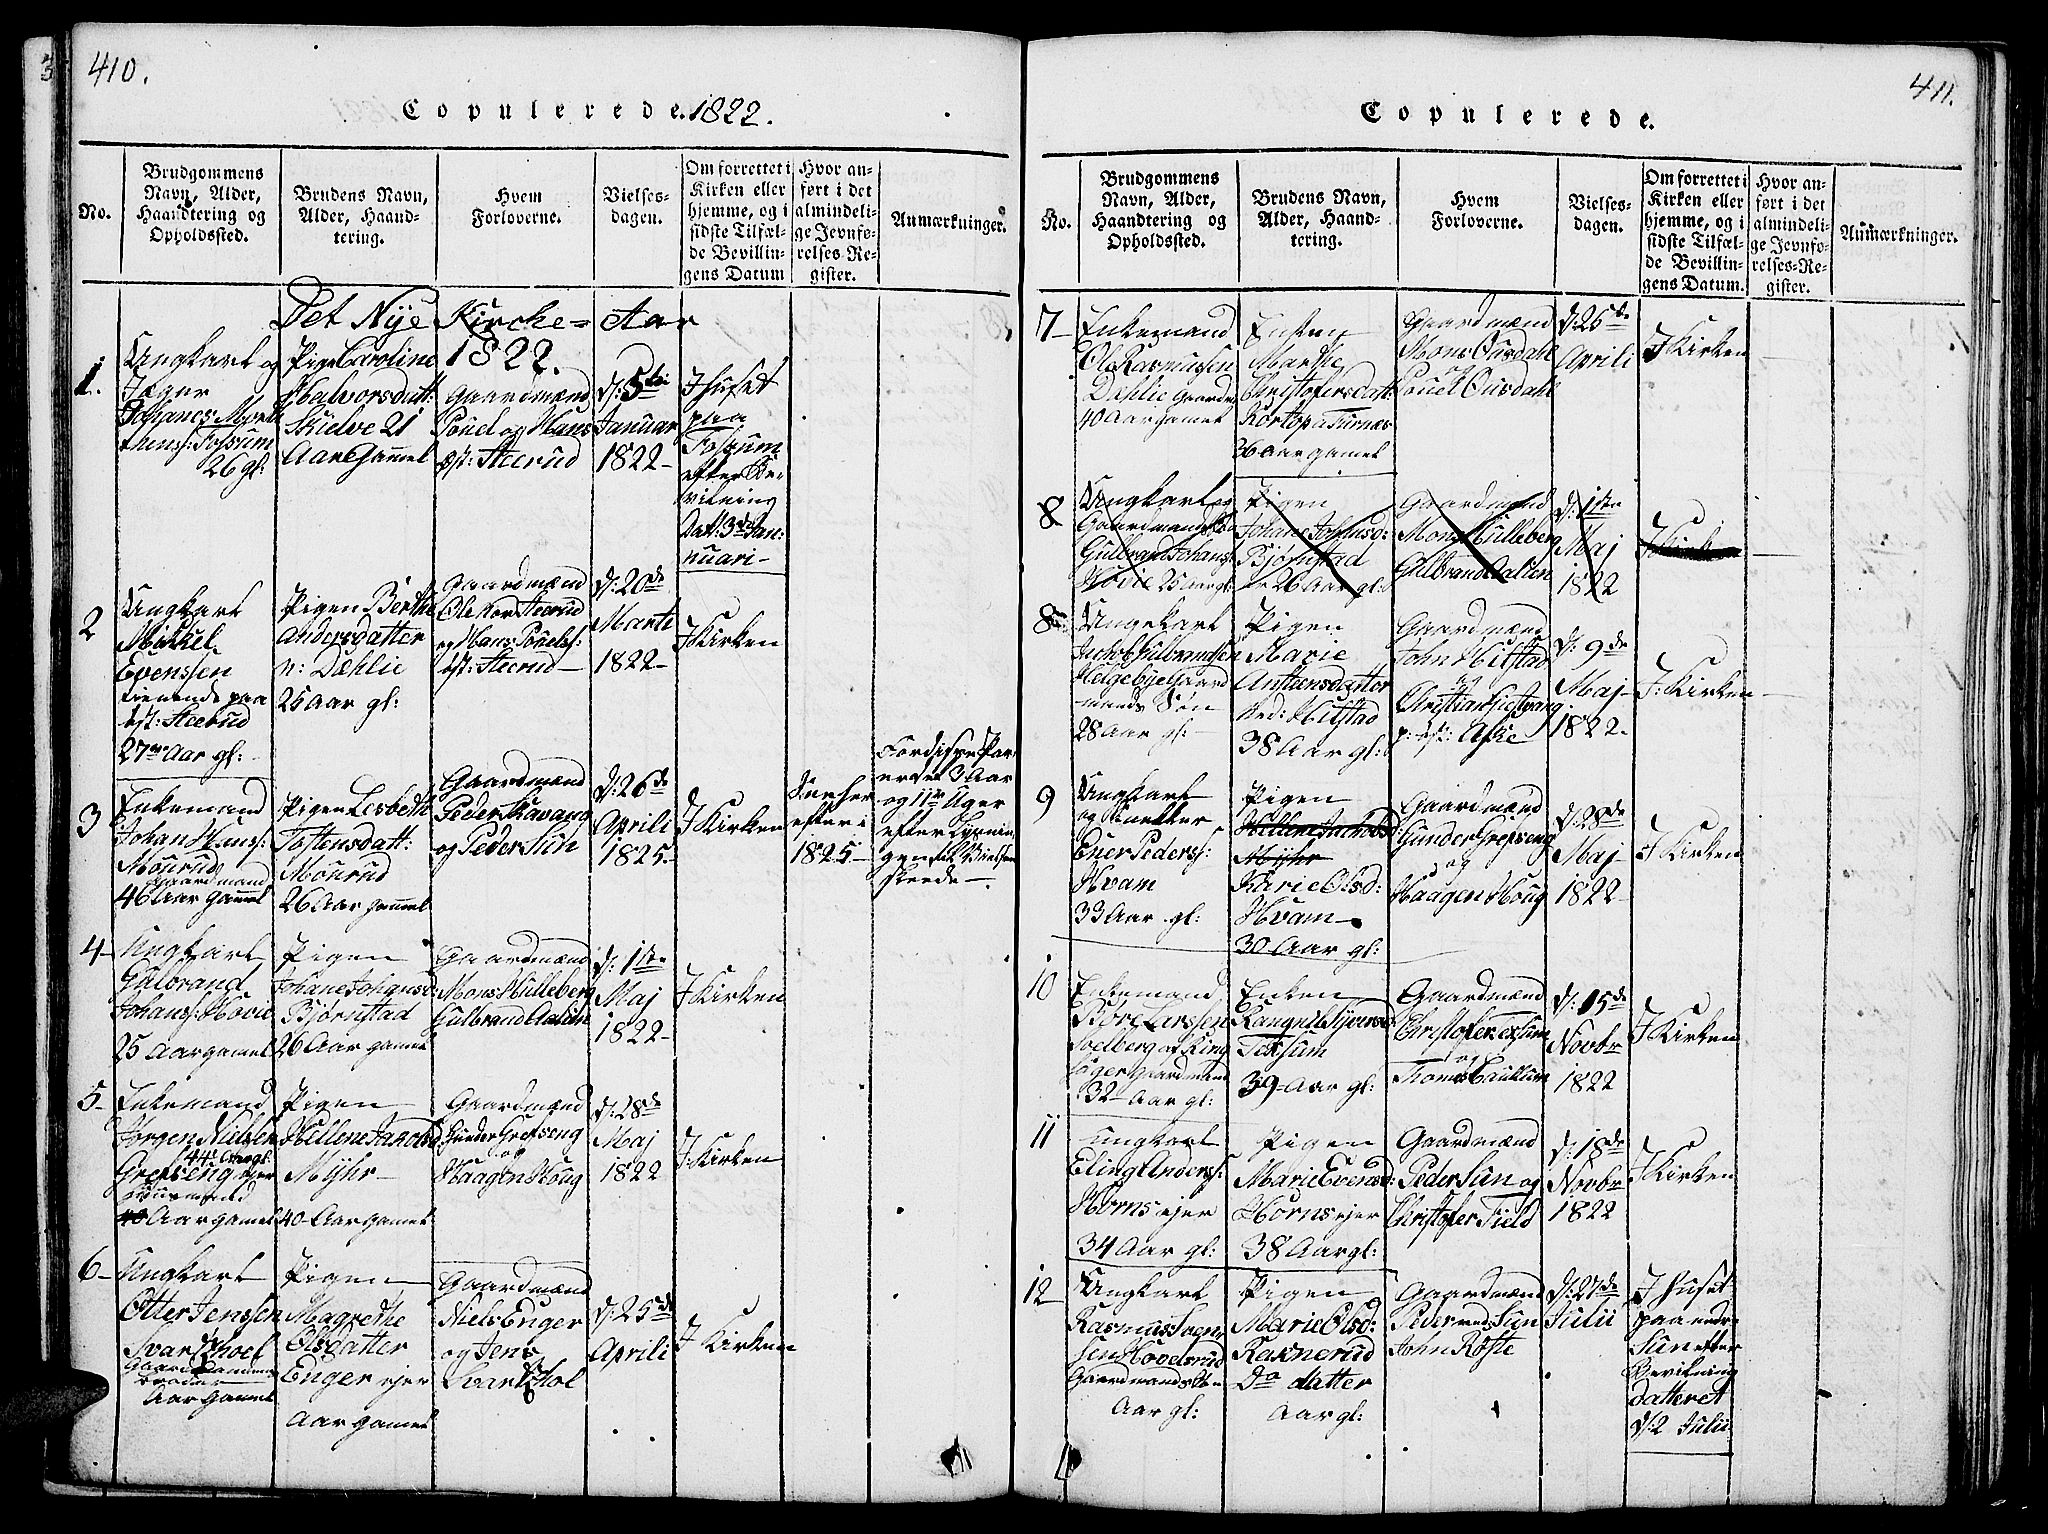 410.
Copulerede. 1822.
No.
Brudgommens Navn, Alder, Haandtering og Opholdssted.
Brudens Navn, Alder, Haandtering.
Hvem Forloverne.
Vielsesdagen.
Om forrettet i Kirken eller hjemme, og i sidste Tilfælde Bevillingens Datum
Hvor anført i det almindelige Jevnførelses-Register.
Anmærkninger.
Det Nye Kirche-Aar
1822.
1.
Ungkarl og
Jæger
Johanes Mort
thens: Fossum
26 gl:
Pige Caroline
Halvorsdatt:
Skielve 21
Aar Gamel
Gaardmænd
Poúel og Hans
øst: Steerud
d: 5te
Januar
1822-
J Huset
paa
Fossum
efter Be-
vilning
Dat: 3de Jan-
nuari-
2
Ungkarl
Mikkel
Evenssen
tienende paa
øst: Steerud
27 Aar gl:
Pigen Berthe
Andersdatter
n: Dæhlie
25 Aar gl:
Gaardmænd
Ole Nor Steerud
og Hans Poúels:
øst: Steerud-
d: 20de
Marti
1822-
J Kirken
3
Enkemand
Johan Hans:
Moúrud
Gaardmand
46 Aar Gamel
Pigen Lesbeth
Tostensdatt:
Moúrud
26 Aar gamel
Gaardmænd
Peder Skavang
og Peder Sún
d: 26de
Aprili
1825-
J Kirken
efter i
1825-
3 Aar
og 11 Uger
efter
skeede-
4-
Ungkarl
Gulbrand
Johans: Hovie
25 Aar gamel
Pigen
Johane Johansd:
Bjørnstad
26 Aar gamel
Gaardmænd
Mons Húlleberg
Gúlbrand Aalien
d: 1ste
Maj
1822-
J Kirken
5-
Enkemand
Jørgen Nielsen
44 Aar gl:
Grefseng ejer
40 Aar gamel
Pigen
Hellene Jacobsd
Myhr-
40 Aar gamel
Gaardmænd
Gunder Grefseng
og
Haagen Houg
d: 28de
Maj
1822
J Kirken
6-
Ungkarl
Otter Jenssen
Svartschoel
Aar gamel
Pigen
Magrethe
Olsdatter
Enger ejer
Aar gamel
Gaardmænd
Niels Enger
og Jens
Svartschol
d: 25de
Aprili
J Kirken
411.
Copulerede.
No.
Brudgommens Navn, Alder, Haandtering og Opholdssted.
Brudens Navn, Alder, Haandtering.
Hvem Forloverne.
Vielsesdagen.
Om forrettet i Kirken eller hjemme, og i sidste Tilfælde Bevillingens Datum.
Hvor anført i det almindelige Jevnførelses-Register.
Anmærkninger.
7-
Enkemand
Ole Rasmussen
Dahlie Gaardm
40 Aar gamel
Enken
Marthe
Christofersdatt:
36 Aar gamel
Gaardmænd
Mons Oúsdahl
og
Poúel Oúsdahl
d: 26de
Aprili
J Kirken
8
Ungkarl og
Gulbrand Johans:
Hovie 25 Aar gl:
Pigen
Johane Johansd:
Bjørnstad
26 Aar gl:
Gaardmænd
Mons Húlleberg
Gulbrand Aalien
d: 1ste
Maj
1822
J Kirken
8
Ungekarl
Jachob Gulbrandsen
Helgebye Gaard
mands Søn
28 Aar gl:
Pigen
Marie
Anstensdatter
Ved: Hilstad
38 Aar gl:
Gaardmænd
John Hilstad
og
d: 9de
Maj-
1822-
J: Kirken
9
Ungkarl
Ener Peders:
Hvam
33 Aar gl:
Pigen
Hellene Jachobsd:
Myhr
Karie Olsd:
Hvam-
30 Aar gl:
Gaardmænd
Gúnder Grefseng
og
Haagen Hoúg
d: 28de
Maj
1822-
J Kirken
10
Enkemand
Børe Larssen
Soelberg af Ring
sager Gaardmand
32 Aar gl:
Enken
Rangnel Syversd
Texsum
39 Aar gl:
Gaardmænd
Christofer Texsum
og
Thomes Caúlum
d: 15de
Novbr
1822
J Kirken
11
Ungkarl
Eling Anders:
Horns ejer
34 Aar gl:
Pigen
Marie Evensd:
Horns ejer
38 Aar gl:
Gaardmænd
Peder Sún og
Christofer Field
d: 18de
Novbr
1822
J Kirken
12
Ungkarl
Rasmus Svens
sen Hovelsrud
Gaardmands Søn
Aar gl:
Pigen
Marie Olsd:
Raknerud
Do datter
Aar gl:
Gaardmænd
Peder ned: Sún
John Røste
d: 27de
Julii
J Huset
paa nedre
Sún efter
Bevilning
datteret
d: 2 Julii